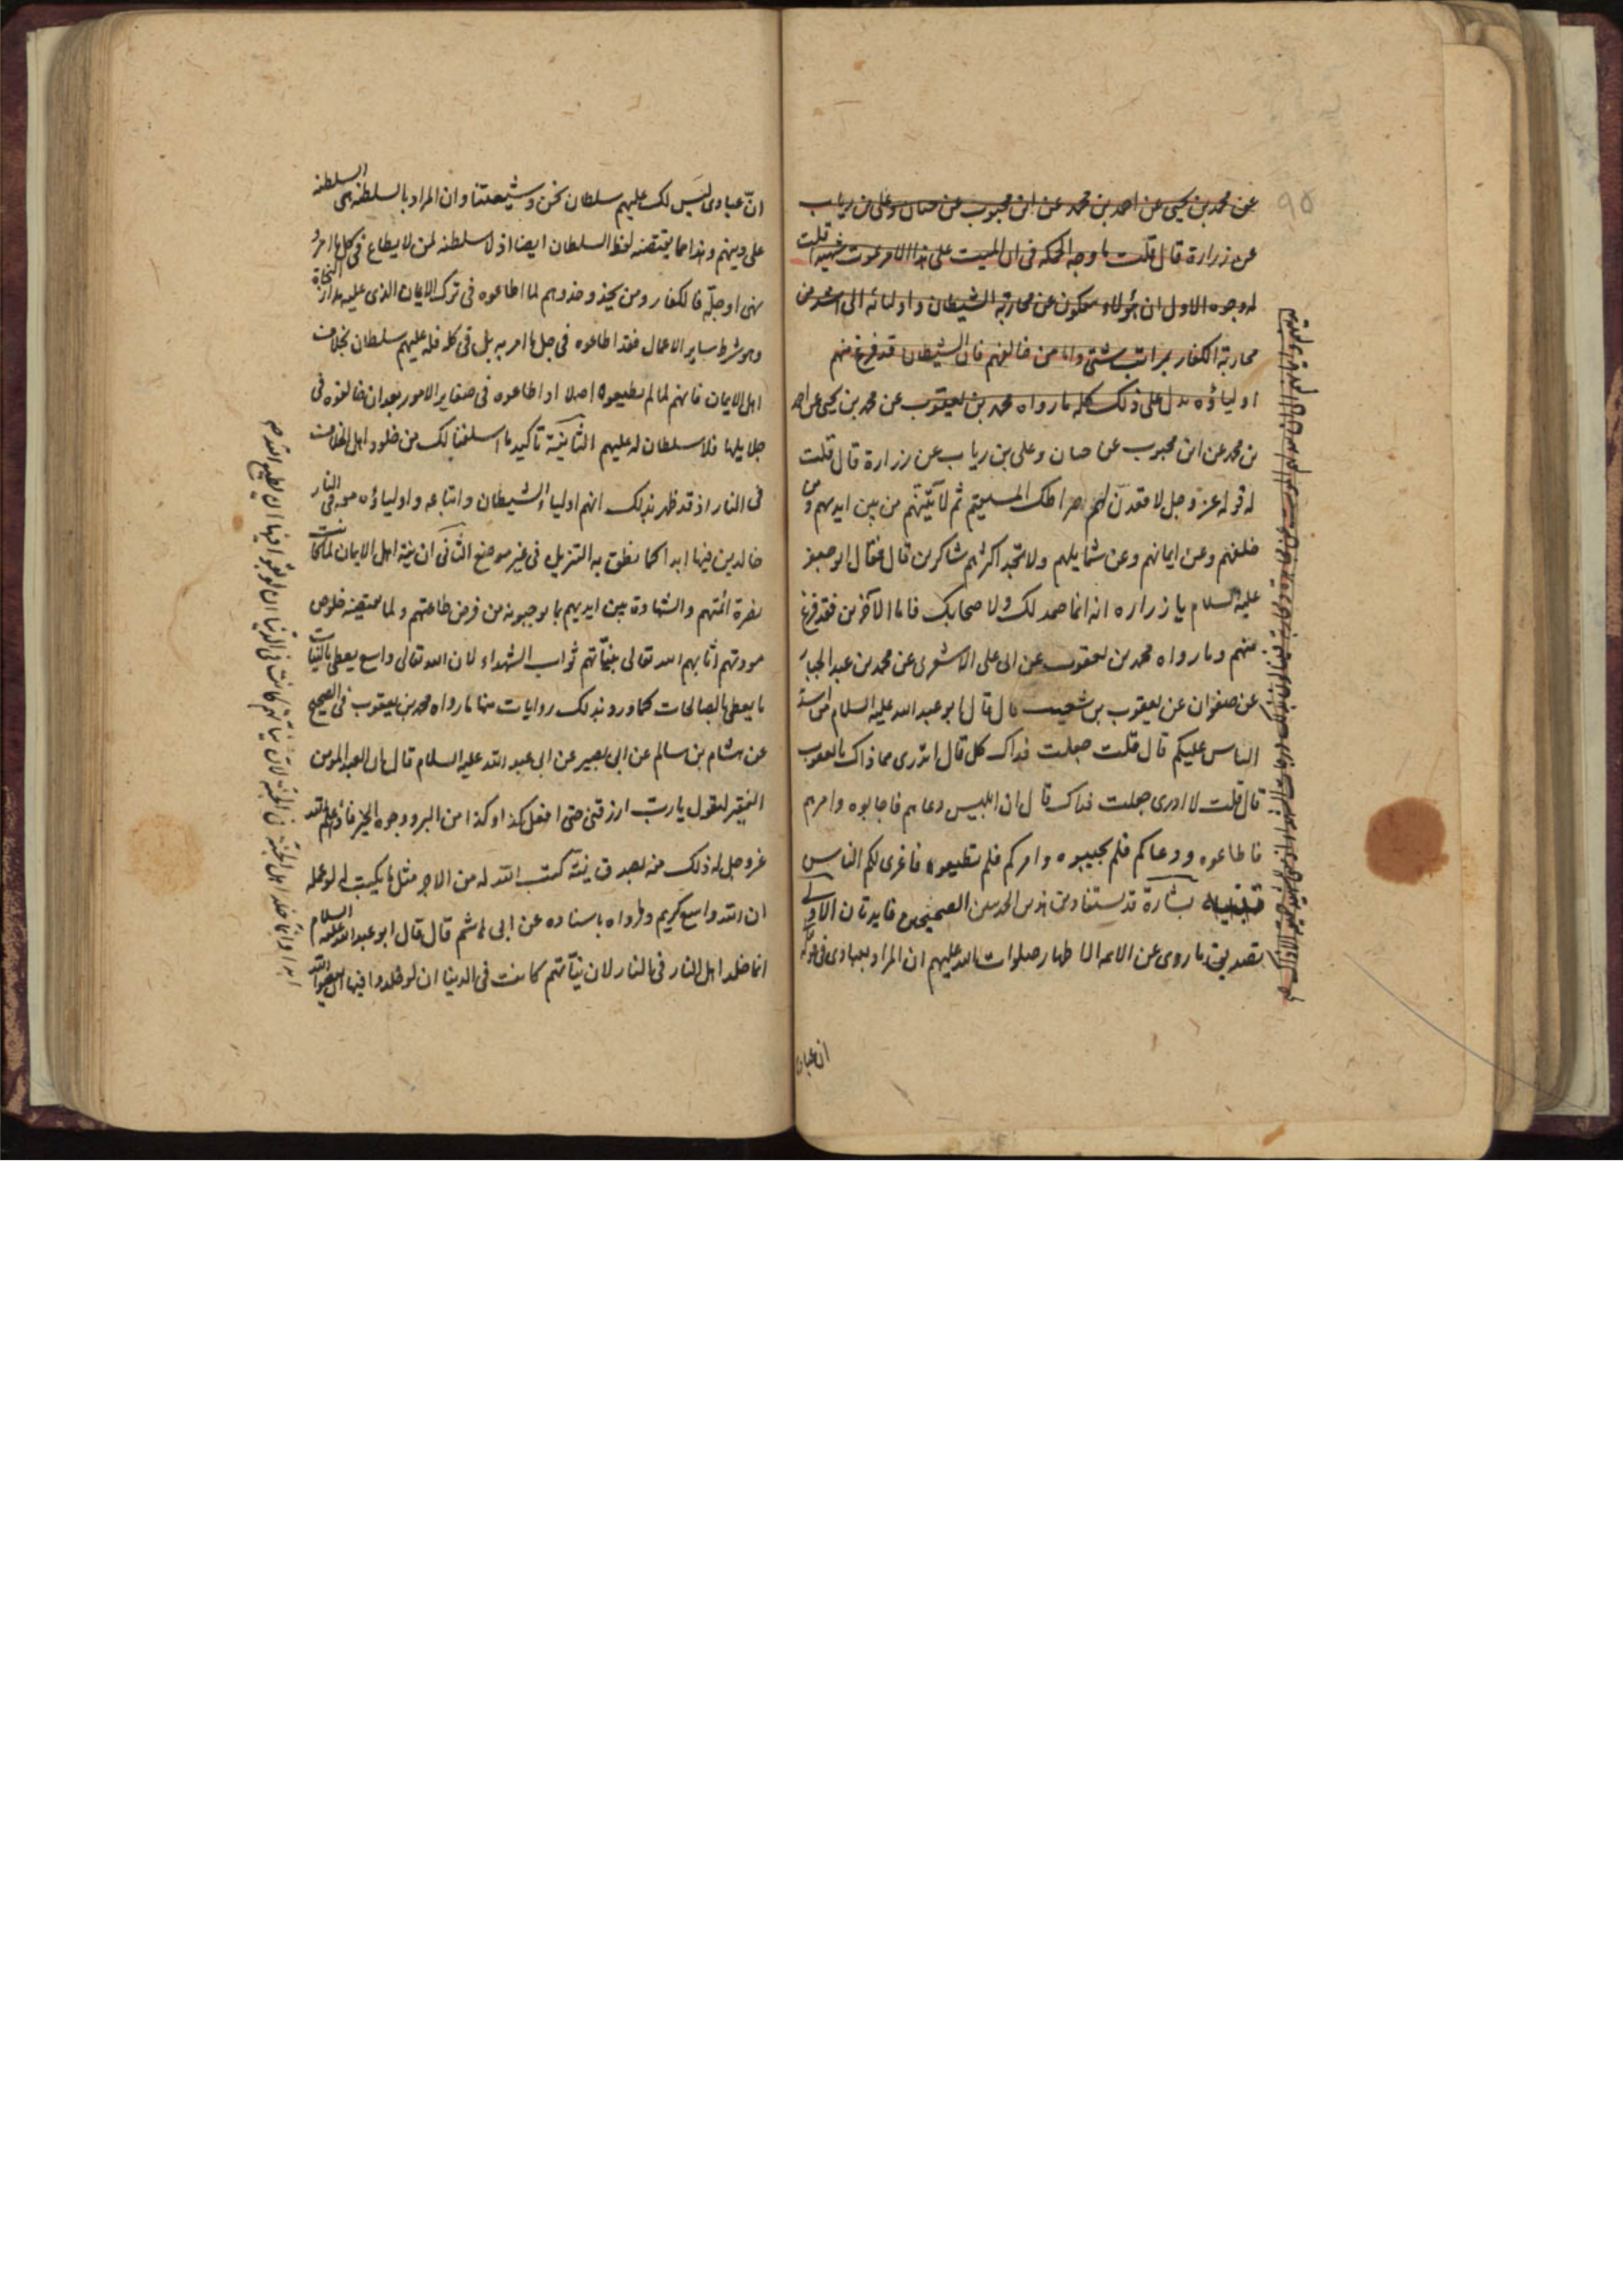 ٩٥
عن محمد بن يحيى عن احمد بن محمد عن ابن محبوب عن حنان وعلى بن رياب
عن زرارة قال قلت ما وجه الحكمه فى ان الميت على هذا الامر يموت شهيدا قلت
له وجوه الاول ان هؤلاء عن محاربة الشيطان واوليائه التى اشد من
محاربة الكفار بمراتب شتى واما من خالفهم فان الشيطان قد فرغ منهم
اولياؤه يدل على ذلك كله ما رواه محمد بن يعقوب عن محمد بن يحيى عن احمد
بن محمد عن ابن محبوب عن حنان وعلى بن رياب عن زرارة قال قلت
له قوله عز وجل لاقعدنّ لهم صراطك المستقيم ثم لآتينّهم من بين ايديهم ومن
خلفهم وعن ايمانهم وعن شمايلهم ولا تجد اكثرهم شاكرين قال فقال ابو جعفر
عليه السلام يا زراره انه انما صمد لك ولاصحابك فاما الآخرين فقد فرغ
منهم وما رواه محمد بن يعقوب عن ابى على الاشعرى عن محمد بن عبد الجبار
عن صفوان عن يعقوب بن شعيب قال قال لى ابو عبد الله عليه السلام من اشد
الناس عليكم قال قلت جعلت فداك كل قال اتدرى مما ذاك يا يعقوب
قال قلت لا ادرى جعلت فداك قال ان ابليس دعاهم فاجابوه وامرهم
فاطاعوه ودعاكم فلم تجيبوه وامركم فلم تطيعوه فاغرى بكم الناس
بشارة قد يستفاد من هذين الحديثين الصحيحين فايدتان الاولى
تصديق ما روى عن الائمه الاطهار صلوات الله عليهم ان المراد بعبادى فى قوله
ان عبادى
انّ عبادى ليس لك عليهم سلطان نحن وشيعتنا وان المراد بالسلطنه هى السلطنه
على دينهم وهذا مما يقتضيه لفظ السلطان ايضا اذ لا سلطنه لمن لا يطاع فى كل ما امر و
نهى او جلّه فالكفار ومن يحذو حذوهم لما اطاعوه فى ترك الايمان الذى عليه مدار النجاة
وهو شرط ساير الاعمال فقد اطاعوه فى جل ما امر به بل فى كله فله عليهم سلطان بخلاف
اهل الايمان فانهم لما لم يطيعوه اصلا او اطاعوه فى صغاير الامور بعد ان خالفوه فى
جلايلها فلا سلطان له عليهم الثانية تاكيد ما اسلفنا لك من خلود اهل الخلاف
فى النار اذ قد ظهر بذلك انهم اولياء الشيطان واتباعه واولياؤه معه فى النار
خالدين فيها ابدا كما نطق به التنزيل فى غير موضع الثانى ان نية اهل الايمان لما كانت
نصرة ائمتهم والشهادة بين ايديهم بما يوجبونه من فرض طاعتهم ولما يقتضيه خلوص
مودتهم اثابهم الله تعالى بنيّاتهم ثواب الشهداء لان الله تعالى واسع يعطى بالنيات
ما يعطى بالصالحات كما ورد بذلك روايات منها ما رواه محمد بن يعقوب فى الصحيح
عن هشام بن سالم عن ابى بصير عن ابى عبد الله عليه السلام قال ان العبد المؤمن
الفقير ليقول يا ربّ ارزقنى حتى افعل كذا وكذا من البر ووجوه الخير فاذا علم الله
عز وجل له ذلك منه بصدق نيته كتب الله له من الاجر مثل ما يكتب له لو عمله
ان الله واسع كريم وما رواه باسناده عن ابى هاشم قال قال ابو عبد الله عليه السلام
انما خلد اهل النار فى النار لان نيّاتهم كانت فى الدنيا ان لو خلدوا فيها ان يعصوا الله
ابدا وانما خلد اهل الجنة فى الجنة لان نياتهم كانت فى الدنيا ان لو بقوا فيها ان يطيعوا الله